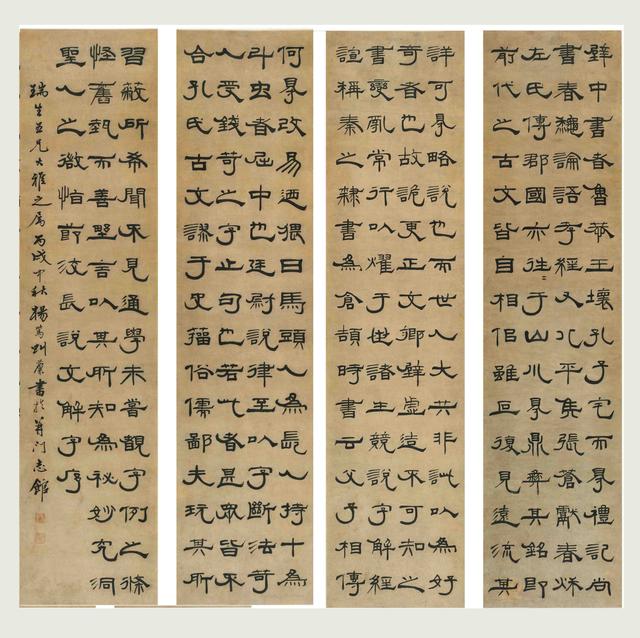 壁中書者魯恭王壞孔子宅而得禮記尚
書春秋論語孝經又北平侯張蒼獻春秋
左氏傳郡國亦往〻于山川得鼎彝其銘即
前代之古文皆自相佀雖叵復見遠流其
詳可得略說也而世人大共非訾以為好
奇者也故詭更正文鄉壁虛造不可知之
書變亂常行以燿于世諸生競說字解經
諠稱秦之隸書為倉頡時書云父子相傳
何得改易迺猥曰馬頭人為長人持十為
斗虫者屈中也廷尉說律至以字斷法苛
人受錢苛之字止句也若此者甚眾皆不
合孔氏古文謬于史籀俗儒鄙夫玩其所
習蔽所希聞不見通學未嘗覩字例之條
怪舊埶而善野言以其所知為祕妙究洞
聖人之微恉節洨長說文解字序
瑞生兄大雅之屬丙戌中秋書於門志館